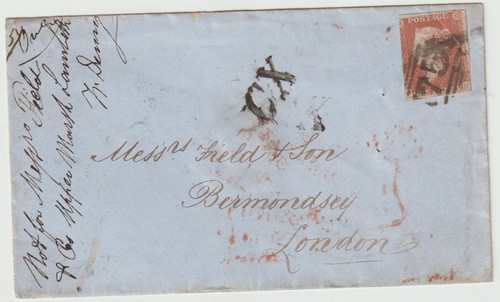 POSTAGE
CX
Messrs Field & Son
Bermondsey
London
Not for Messrs Field
& Co Upper Marsh Lambeth